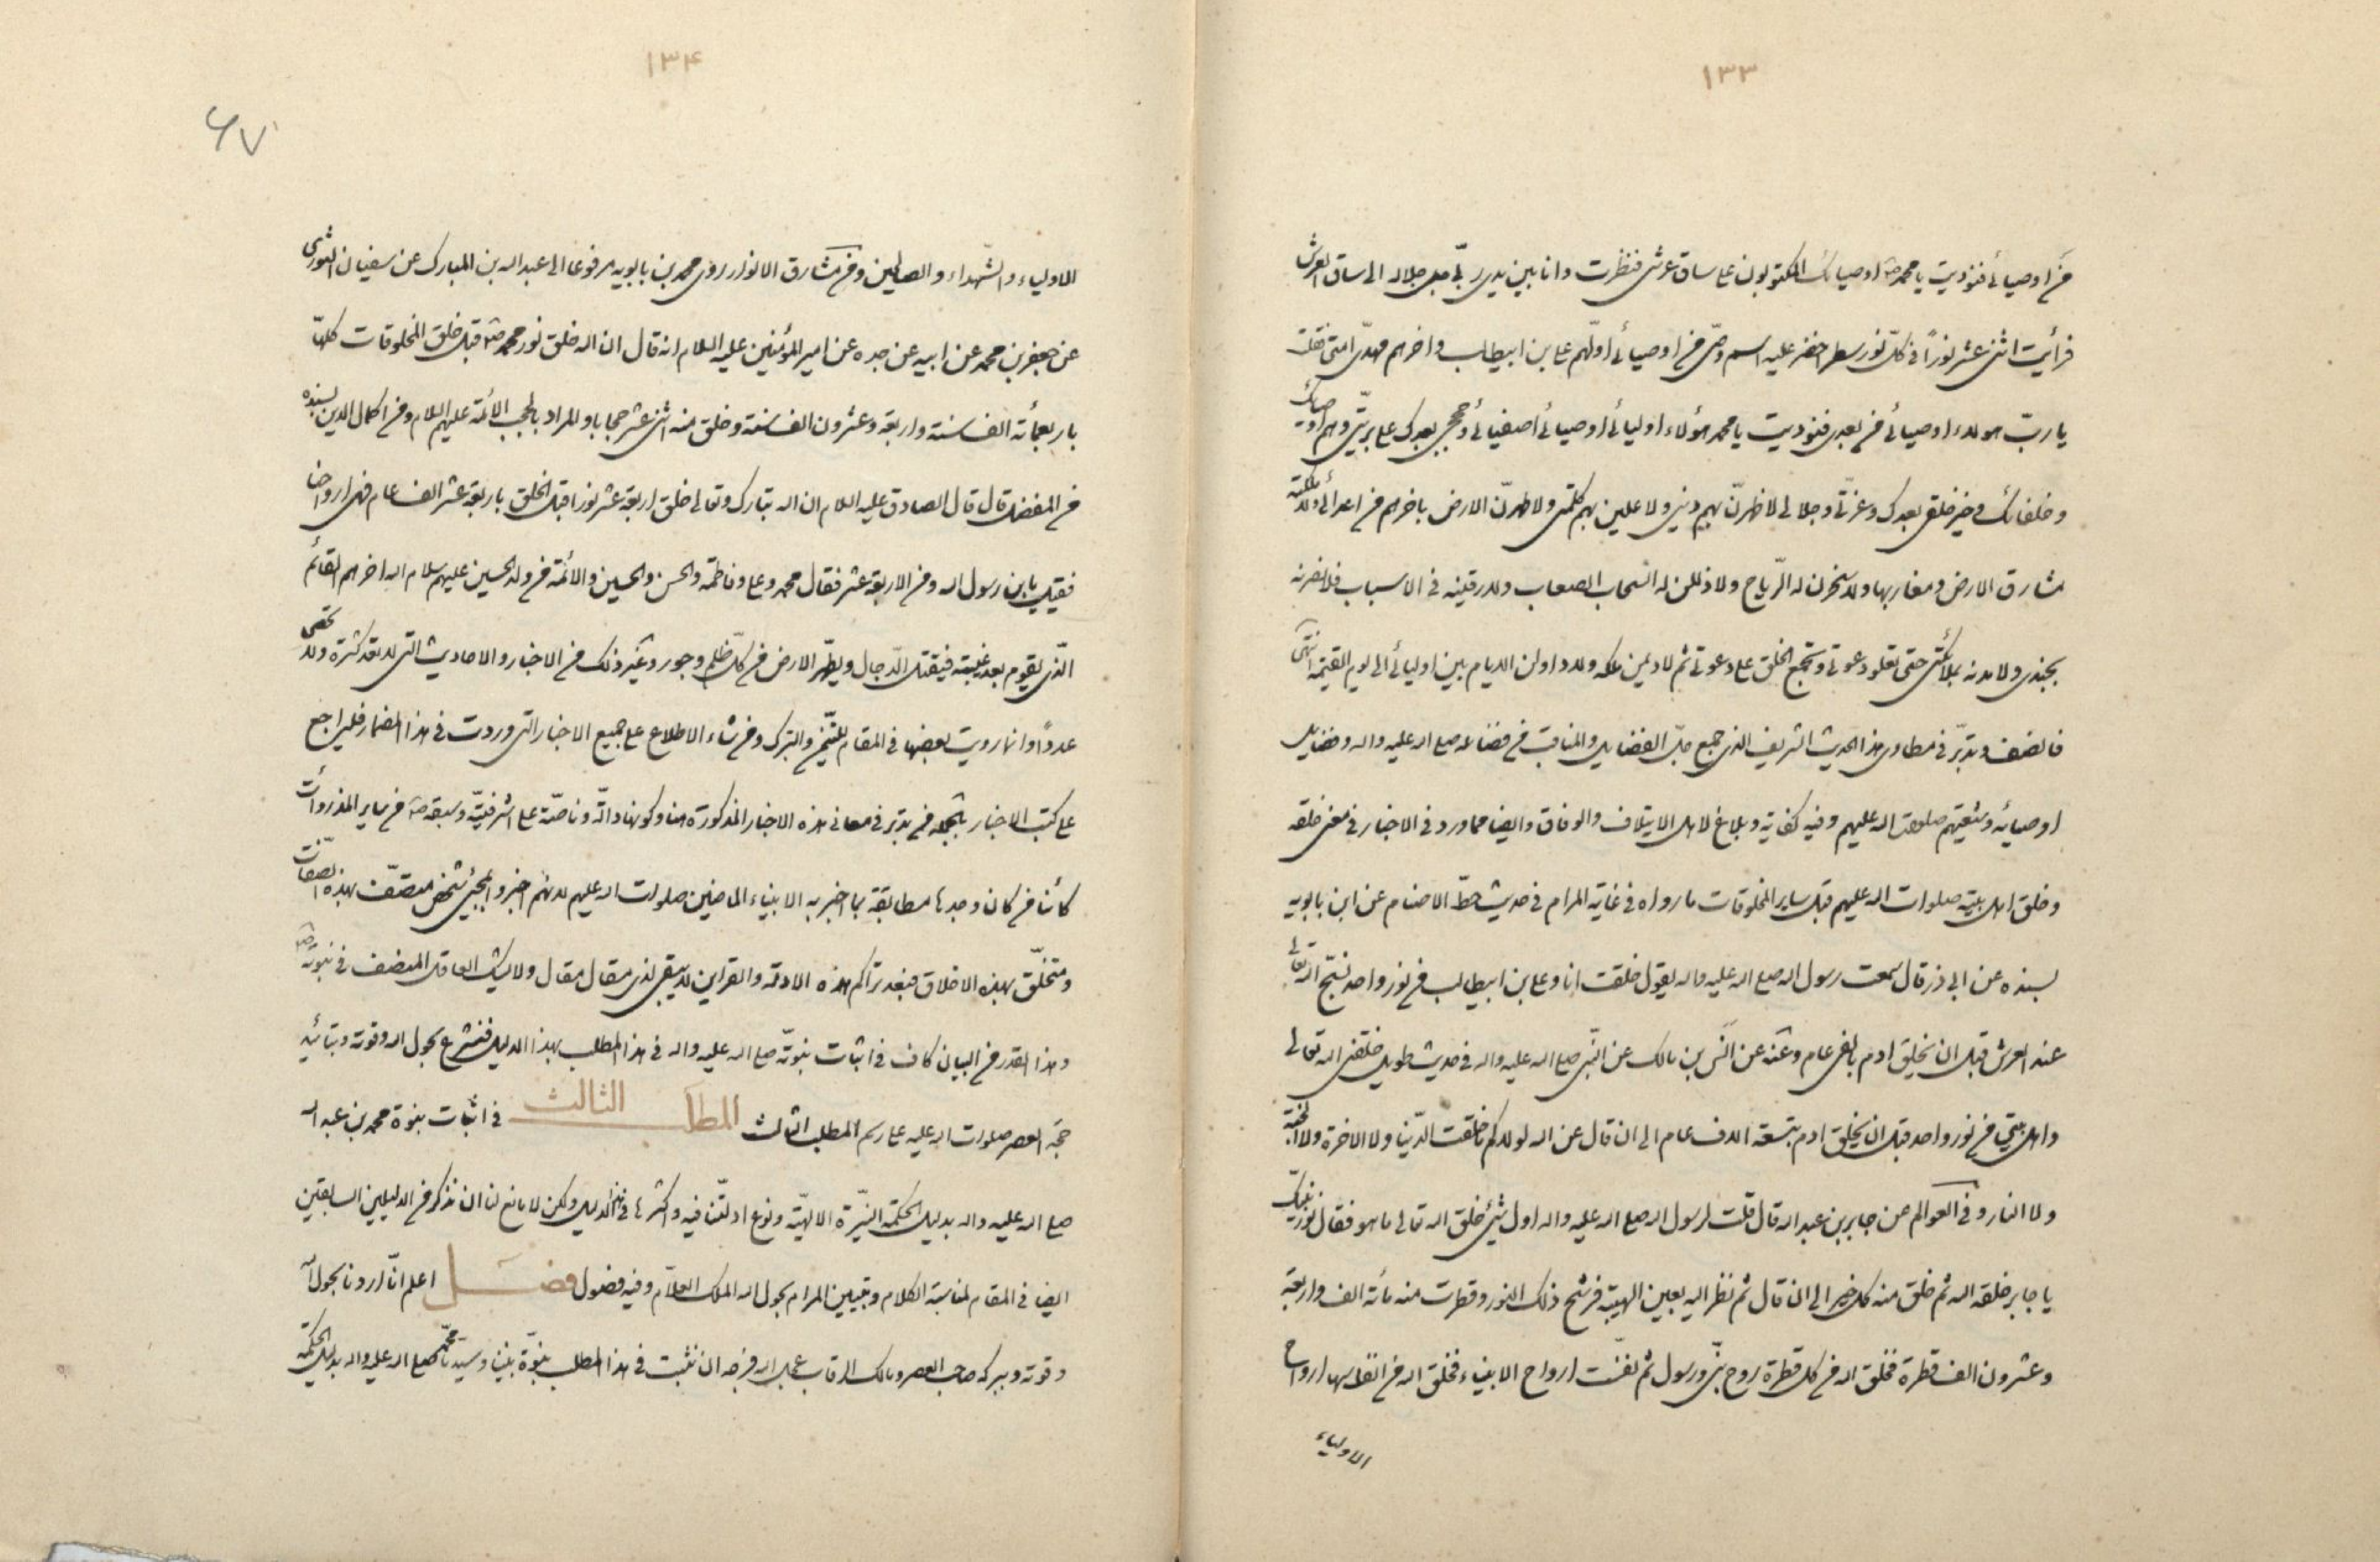 ١٣٣
من اوصيائي فنوديت يا محمد ص اوصيائك المكتوبون على ساق عرشي فنظرت وانا بين يدي ربّي جل جلاله الى ساق العرش
فرأيت اثنى عشر نوراً في كلّ نور سطر اخضر عليه اسم وصّي من اوصيائي اوّلهم علي بن ابيطالب واخرهم مهديّ امتي فقلت
يا ربّ هولاء اوصيائي من بعدي فنوديت يا محمد هؤلاء اوليائي اوصيائي اصفيائي وحججي بعدك على بريّتي وهم اوصيائك
وخلفائك وخير خلقي بعدك وعزتّي وجلالي لاظهرنّ بهم ديني ولاعلين بهم كلمتي ولاطهرنّ الارض باخرهم من اعدائي ولاملكنه
مشارق الارض ومغاربها ولاسخرن له الرّياح ولاذللن له السّحاب الصعاب ولارقينه في الاسباب فلانصرنه
بجندي ولامدنه بملائكتي حتى تعلو دعوتي وتجمع الخلق على دعوتي ثم لاديمن ملكه ولاداولن الايام بين اوليائي الى يوم القيمة انتهى
فانصف وتدبّر في مطاوي هذا الحديث الشريف الذي جمع جلّ الفضايل والمناقب من فضائله صلى الله عليه واله وفضايل
اوصيائه وشيعتهم صلوات الله عليهم وفيه كفاية وبلاغ لاهل الايتلاف والوفاق وايضا مما ورد في الاخبار في معنى خلقه
وخلق اهل بيته صلوات الله عليهم قبل ساير المخلوقات ما رواه في غاية المرام في حديث حطّ الاصنام عن ابن بابويه
بسنده عن ابي ذر قال سمعت رسول الله صلى الله عليه واله يقول خلقت انا وعلي بن ابيطالب من نور واحد نسبّح الله تعالى
عند العرش قبل ان يخلق ادم بالفى عام وعنه عن انس بن مالك عن النّبي صلى الله عليه واله في حديث طويل خلقني الله تعالى
واهل بيتي من نور واحد قبل ان يخلق ادم بتسعة الاف عام الى ان قال عن الله لولاكم ما خلقت الدّنيا ولا الاخرة ولا الجنة
ولا النار وفي العوالم عن جابر بن عبد الله قال قلت لرسول الله صلى الله عليه واله اول شيئ خلق الله تعالى ما هو فقال نور نبيك
يا جابر خلقه الله ثم خلق منه كل خير الى ان قال ثم نظر اليه بعين الهيبة فرشح ذلك النور وقطرت منه مائة الف واربعة
وعشرون الف قطرة فخلق الله من كل قطرة روح نبّي ورسول ثم تنفست ارواح الانبياء فخلق الله من انفاسها ارواح
الاولياء
١٣۴
۶٧
الاولياء والشّهداء والصالحين وفي مشارق الانوار روى محمد بن بابويه مرفوعا الى عبد الله بن المبارك عن سفيان الثورى
عن جعفر بن محمد عن ابيه عن جده عن امير المؤمنين عليه السلام انه قال ان الله خلق نور محمد ص قبل خلق المخلوقات كلهّا
باربعمائة الف سنة واربعة وعشرون الف سنة وخلق منه اثنى عشر حجابا والمراد بالحجب الائمة عليهم السلام وفي اكمال الدين بسنده
عن المفضل قال قال الصادق عليه السلام ان الله تبارك وتعالى خلق اربعة عشر نورا قبل الخلق باربعة عشر الف عام فهى ارواحنا
فقيل يا بن رسول الله ومن الاربعة عشر فقال محمد وعلى وفاطمة والحسن والحسين والائمة من ولد الحسين عليهم سلام الله اخرهم القائم
الّذي يقوم بعد غيبته فيقتل الدّجال ويطهر الارض من كل ظلم وجور وغير ذلك من الاخبار والاحاديث التي لا تعد كثرة ولا تحصى
عدداً وانما رويت بعضها في المقام للتيّمن والتبرك ومن شاء الاطلاع على جميع الاخبار التي وردت في هذا المضمار فليراجع
على كتب الاخبار بالجملة من تدبر في معاني هذه الاخبار المذكورة هنا وكونها دالّة وناصّة على اشرفيّته وسبقه ص من ساير المذروأت
كائنا من كان وجدها مطابقة بما اخبر به الانبياء الماضين صلوات الله عليهم لانهم اخبروا بمجيئ شخص متصّف بهذه الصّفات
ومتخلّق بهذه الاخلاق فبعد تراكم هذه الادلة والقراين لا يبقى لذي مقال مقال ولا يشك العاقل المنصف في نبوته ص
وهذا القدر من البيان كاف في اثبات نبوتّه صلى الله عليه واله في هذا المطلب بهذا الدليل فنشرع بحول الله وقوته وبتائيد
حجة العصر صلوات الله عليه على رسم المطلب الثالث المطلب الثالث في اثبات نبوة محمد بن عبد الله
صلى الله عليه واله بدليل الحكمة النيّرة الالهيّة ونوع ادلّتنا فيه واكثرها في هذا الدليل ولكن لا مانع لنا ان نذكر من الدليلين السابقين
ايضا في المقام لمناسبة الكلام وتبيين المرام بحول الله الملك العلّام وفيه فصول فصل اعلم انّا اردنا بحول الله
وقوته وببركة صاحب العصر ومالك الرقاب عجل الله فرجه ان نثبت في هذا المطلب نبوّة نبينا وسيدنا محمد صلى الله عليه واله بدليل الحكمة